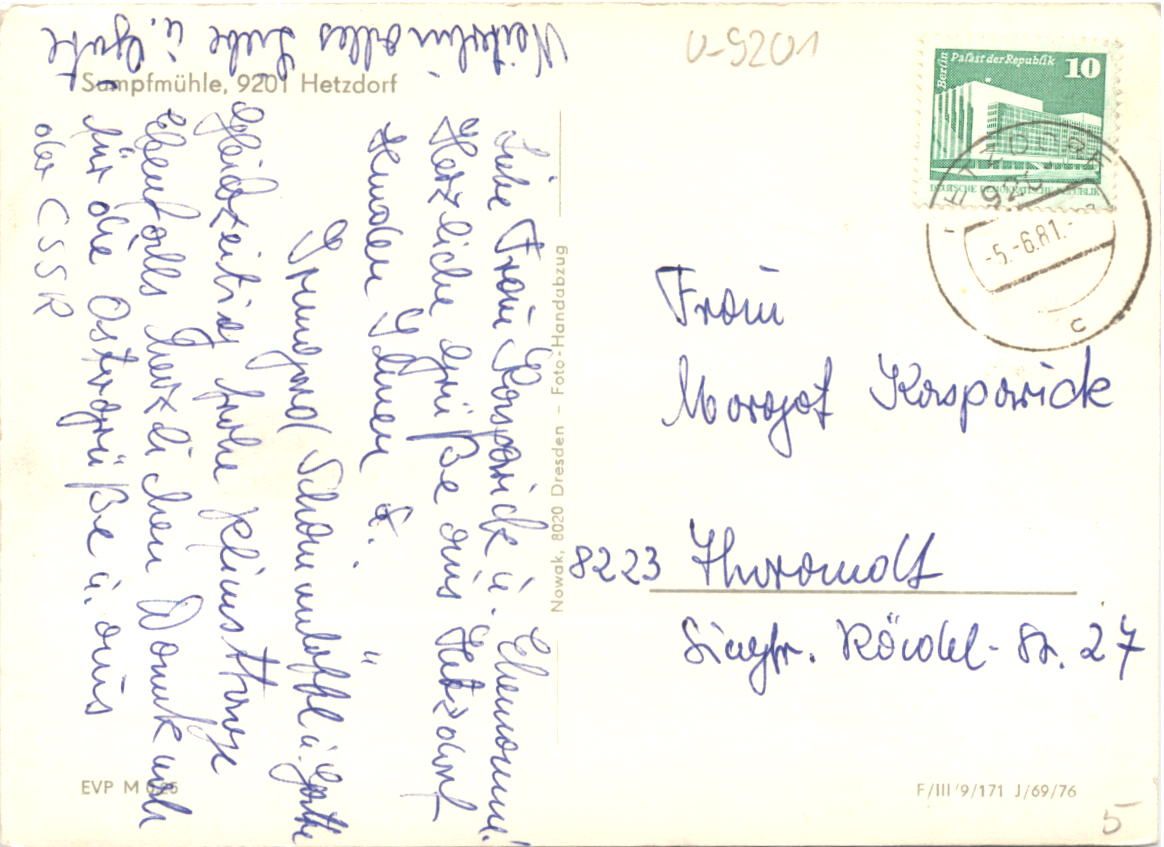 Sumpfmühle, 9201 Hetzdorf
Liebe Frau Kasparick u. Ehemann!
Herzliche Grüße aus Hetzdorf
senden Ihnen
Irmgard u. Gatte
Gleichzeitig frohe Pfingsttage
Ebenfalls herzlichen Dank auch
für die Ostergrüße u. aus
der CSSR
Weiterhin alles Liebe u. Gute
EVP M
Nowak, 8020 Dresden – Foto-Handabzug
0-9201
Berlin Palast der Republik 10
DEUTSCHE DEMOKRATISCHE REPUBLIK
HETZDORF
920
-5.-6.81.-
c
Frau
Margot Kasparick
8223 Tharandt
Siegfr. Rädel- Str. 27
F/III/9/171 J/69/76
5